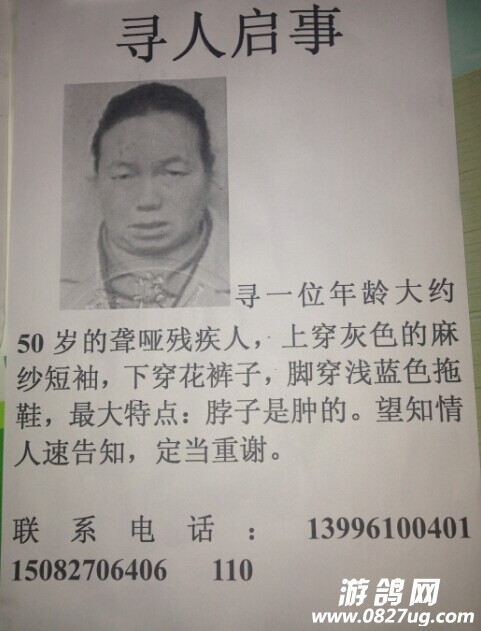 寻人启事
寻一位年龄大约
50 岁的聋哑残疾人，上穿灰色的麻
纱短袖，下穿花裤子，脚穿浅蓝色拖
鞋，最大特点：脖子是肿的。望知情
人速告知，定当重谢。
联系电话：13996100401
15082706406 110
游鸽网
www.0827ug.com